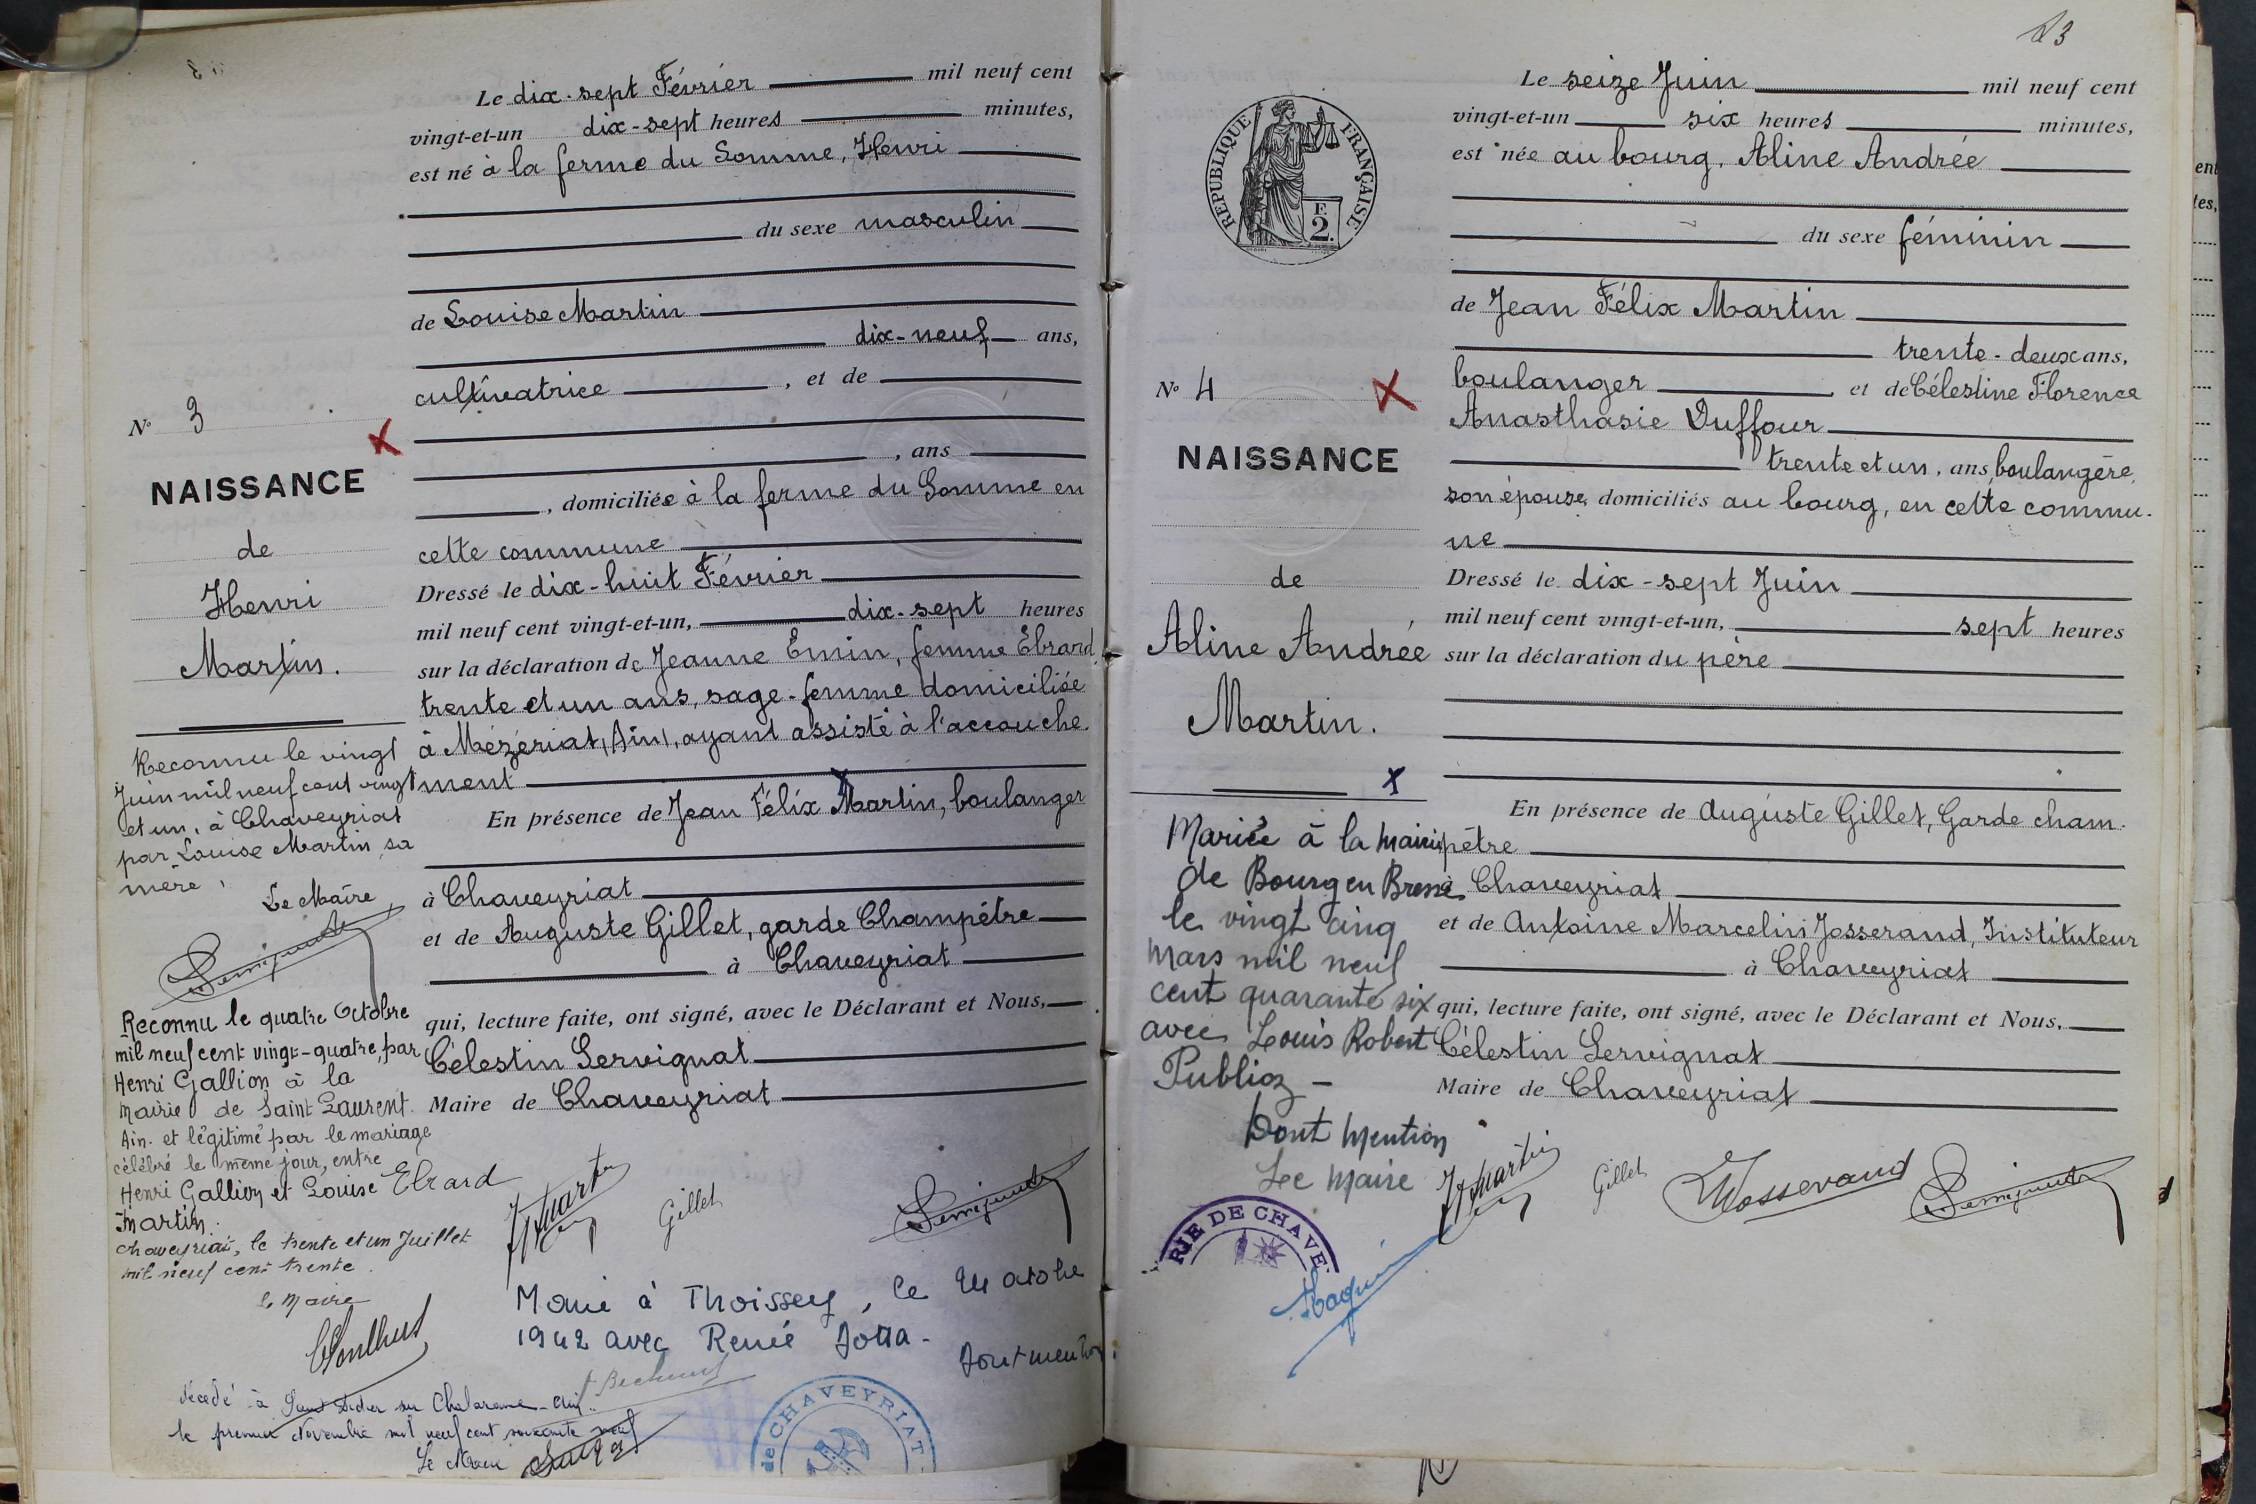 Le dix-sept Février mil neuf cent
vingt-et-un dix-sept heures minutes,
est né à la ferme du Somme, Henri
du sexe masculin
de Louise Martin
dix-neuf ans,
cultivatrice , et de
, ans
, domiciliée à la ferme du Somme en
cette commune
Dressé le dix-huit Février
mil neuf cent vingt-et-un, dix-sept heures
sur la déclaration de Jeanne Emin, femme Ebrard,
trente et un ans, sage-femme domiciliée
à Mézériat (Ain), ayant assisté à l'accouche
ment
En présence de Jean Félix Martin, boulanger
à Chaveyriat
et de Auguste Gillet, garde Champêtre
à Chaveyriat
qui, lecture faite, ont signé, avec le Déclarant et Nous,
Célestin Servignat
Maire de Chaveyriat
Ebrard
JF Martin
Gillet
Servignat
Marié à Thoissey, le 24 octobre
1942 avec Renée
Dont mention
de CHAVEYRIAT
N° 3
NAISSANCE
de
Henri
Martin.
Reconnu le vingt
Juin mil neuf cent vingt
et un, à Chaveyriat
par Louise Martin, sa
mère,
Le Maire,
Servignat
Reconnu le quatre Octobre
mil neuf cent vingt-quatre, par
Henri Gallion à la
Mairie de Saint Laurent
Ain. et légitimé par le mariage
célébré le même jour, entre
Henri Gallion et Louise
Martin.
Chaveyriat, le trente et un Juillet
mil neuf cent trente.
le Maire
décédé à Saint Didier sur Chalaronne - Ain
le premier Novembre mil neuf cent soixante neuf
Le Maire
23
REPUBLIQUE FRANÇAISE
F.
2.
Le seize Juin mil neuf cent
vingt-et-un six heures minutes,
est née au bourg, Aline Andrée
du sexe féminin
de Jean Félix Martin
trente-deux ans,
boulanger et de Célestine Florence
Anasthasie Duffour
trente et un, ans, boulangère,
son épouse, domiciliés au bourg, en cette commu-
ne
Dressé le dix-sept Juin
mil neuf cent vingt-et-un, sept heures
sur la déclaration du père
En présence de Auguste Gillet, Garde cham-
pêtre
à Chaveyriat
et de Antoine Marcelin Josserand, Instituteur
à Chaveyriat
qui, lecture faite, ont signé, avec le Déclarant et Nous,
Célestin Servignat
Maire de Chaveyriat
JF Martin
Gillet
Josserand
Servignat
N° 4
NAISSANCE
de
Aline Andrée
Martin.
Mariée à la mairie
de Bourg en Bresse
le vingt cinq
mars mil neuf
cent quarante six
avec Louis Robert
Publioz -
Dont mention
Le Maire
RIE DE CHAVE